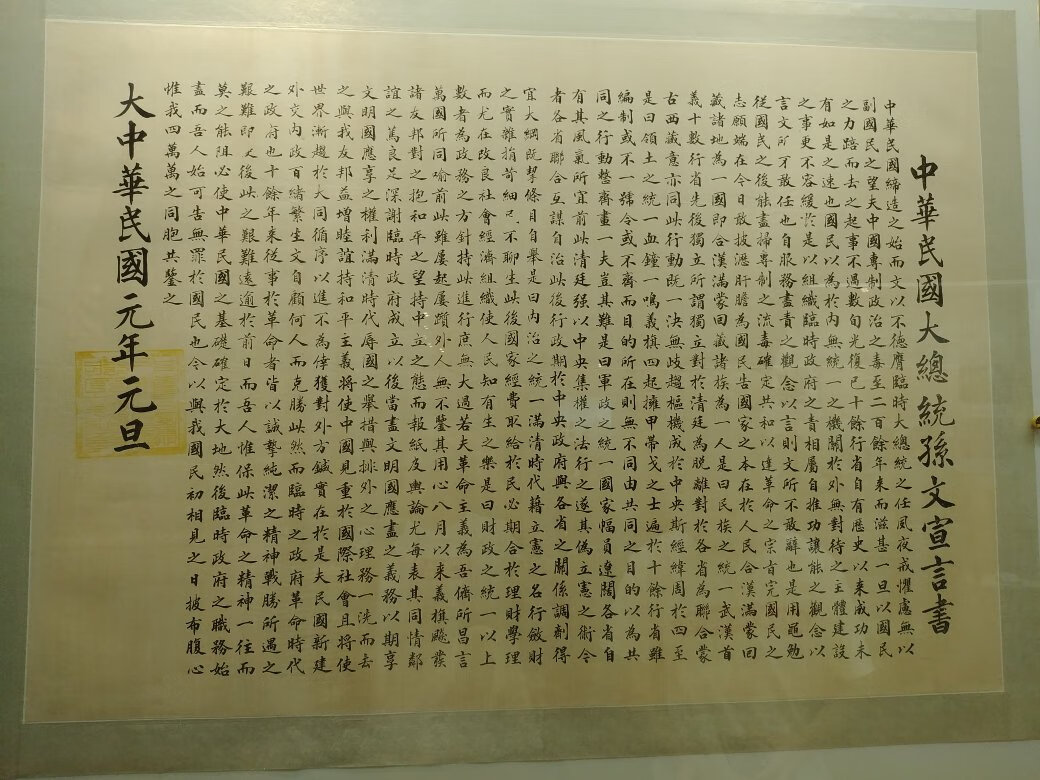 中華民國大總統孫文宣言書
中華民國締造之始而文以不德膺臨時大總統之任夙夜戒懼慮無以
副國民之望夫中國專制政治之毒至二百餘年來而滋甚一旦以國民
之力踣而去之起事不過數旬光復已十餘行省自有歷史以來成功未
有如是之速也國民以為於內無統一之機關於外無對待之主體建設
之事更不容緩於是以組織臨時政府之責相屬自推功讓能之觀念以
言文所不敢任也自服務盡責之觀念以言則文所不敢辭也是用黽勉
從國民之後能盡掃專制之流毒確定共和以達革命之宗旨完國民之
志願端在今日敢披瀝肝膽為國民告國家之本在於人民合漢滿蒙回
藏諸地為一國即合漢滿蒙回藏諸族為一人是曰民族之統一武漢首
義十數行省先後獨立所謂獨立對於清廷為脫離對於各省為聯合蒙
古西藏意亦同此行動既一決無歧趨樞機成於中央斯經緯周於四至
是曰領土之統一血鐘一鳴義旗四起擁甲帶戈之士遍於十餘行省雖
編制或不一號令或不齊而目的所在則無不同由共同之目的以為共
同之行動整齊畫一夫豈其難是曰軍政之統一國家幅員遼闊各省自
有其風氣所宜前此清廷强以中央集權之法行之遂其偽立憲之術今
者各省聯合互謀自治此後行政期於中央政府與各省之關係調劑得
宜大綱既挈條目自舉是曰內治之統一滿清時代藉立憲之名行斂財
之實雜捐苛細民不聊生此後國家經費取給於民必期合於理財學理
而尤在改良社會經濟組織使人民知有生之樂是曰財政之統一以上
數者為政務之方針持此進行庶無大過若夫革命主義為吾儕所昌言
萬國所同喻前此雖屢起屢躓外人無不鑒其用心八月以來義旗飈發
諸友邦對之抱和平之望持中立之態而報紙及輿論尤每表其同情鄰
誼之篤良足深謝臨時政府成立以後當盡文明國應盡之義務以期享
文明國應享之權利滿清時代辱國之舉措與排外之心理務一洗而去
之與我友邦益增睦誼持和平主義將使中國見重於國際社會且將使
世界漸趨於大同循序以進不為倖獲對外方鍼實在於是夫民國新建
外交內政百緒繁生文自顧何人而克勝此然而臨時之政府革命時代
之政府也十餘年來從事於革命者皆以誠摯純潔之精神戰勝所遇之
艱難即使後此之艱難遠逾於前日而吾人惟保此革命之精神一往而
莫之能阻必使中華民國之基礎確定於大地然後臨時政府之職務始
盡而吾人始可告無罪於國民也今以與我國民初相見之日披布腹心
惟我四萬萬之同胞共鑒之
大中華民國元年元旦